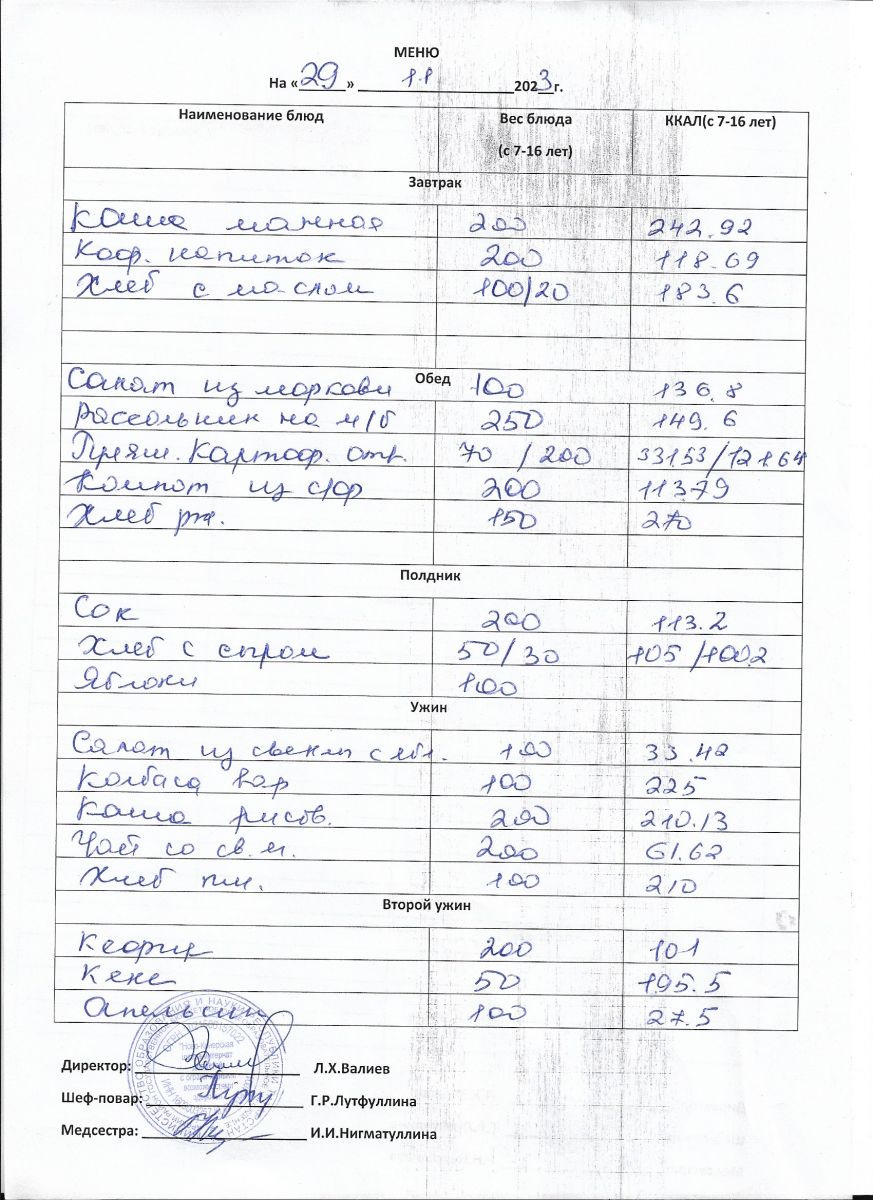 МЕНЮ
На «29» 11 2023г.
Наименование блюд Вес блюда (с 7-16 лет) ККАЛ(с 7-16 лет)
Завтрак
Каша манная 200 242.92
Коф. напиток 200 118.69
Хлеб с маслом 100/20 183.6
Обед
Салат из моркови 100 136.8
Рассольник на м/б 250 149.6
Гуляш. Картоф. отв. 70 / 200 331.53/121.64
Компот из с/фр 200 113.79
Хлеб рж. 150 270
Полдник
Сок 200 113.2
Хлеб с сыром 50/30 105/100.2
Яблоки 100
Ужин
Салат из свеклы с ябл. 100 33.42
Колбаса вар 100 225
Каша рисов. 200 210.13
Чай со св.м. 200 61.62
Хлеб пш. 100 210
Второй ужин
Кефир 200 101
Кекс 50 195.5
Апельсин 100 27.5
Директор: Л.Х.Валиев
Шеф-повар: Г.Р.Лутфуллина
Медсестра: И.И.Нигматуллина